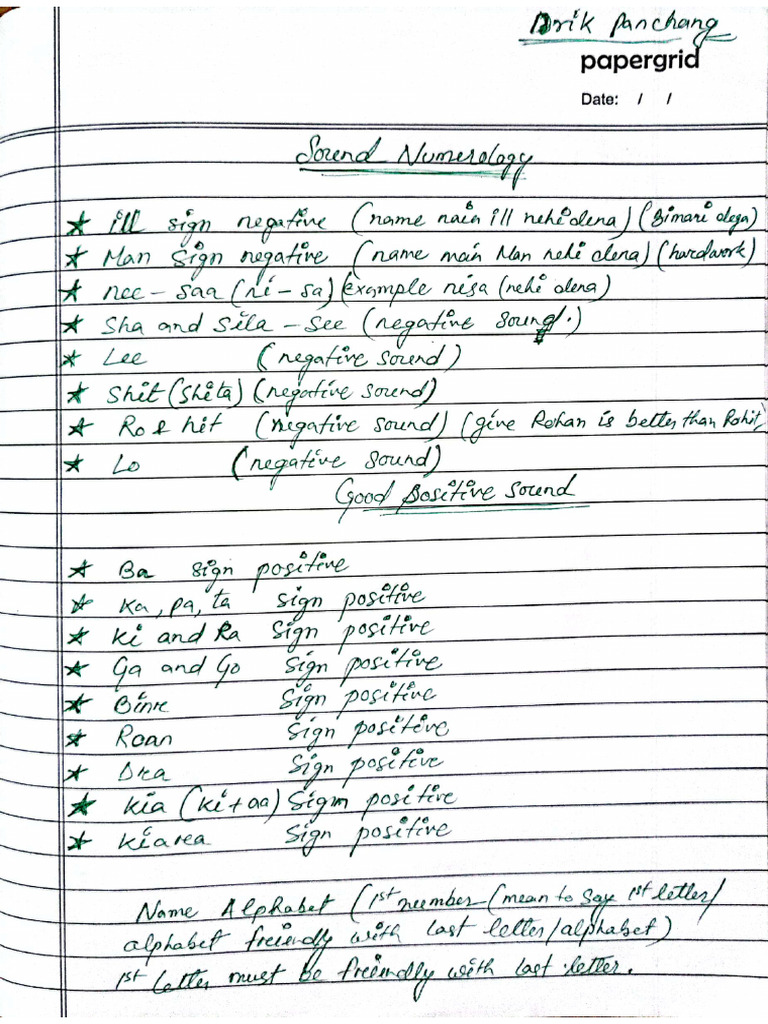 Drik Panchang
papergrid
Date: / /
Sound Numerology
★ ill sign negative (name main ill nehi dena) (Bimari dega)
★ Man Sign negative (name main Man nehi dena) (hardwork)
★ nee - saa (ni - sa) (example nisa (nehi dena)
★ Sha and Sila - See (negative sound.)
★ Lee (negative sound)
★ Shit (Shita) (negative sound)
★ Ro & hit (negative sound) (give Rohan is better than Rohit)
★ Lo (negative sound)
Good positive sound
★ Ba sign positive
★ Ka, pa, ta sign positive
★ Ki and Ra Sign positive
★ Ga and Go Sign positive
★ Binre Sign positive
★ Roan Sign positive
★ Dra Sign positive
★ Kia (Ki+aa) Sign positive
★ Kiarea Sign positive
Name Alphabet (1st number (mean to say 1st letter/
alphabet freindly with last letter/alphabet)
1st letter must be freindly with last letter.